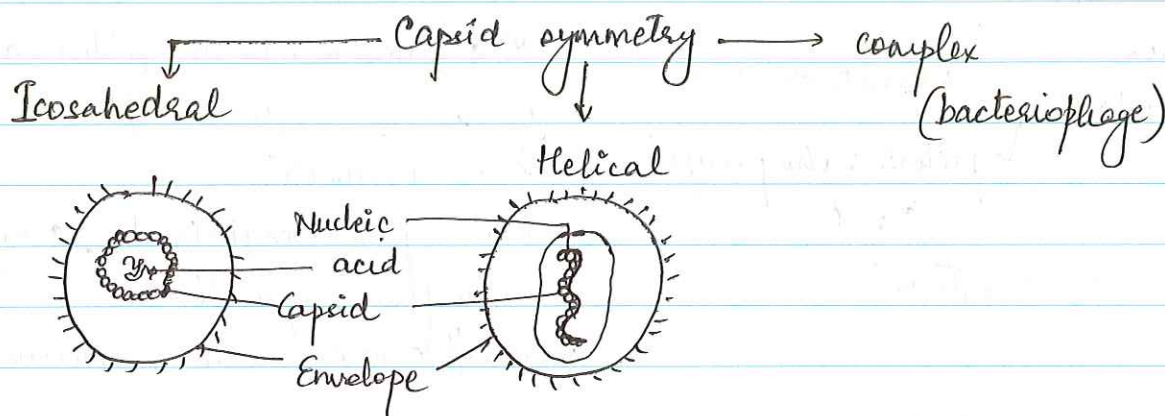 Capsid symmetry
complex
(bacteriophage)
Icosahedral
Helical
Nucleic
acid
Capsid
Envelope